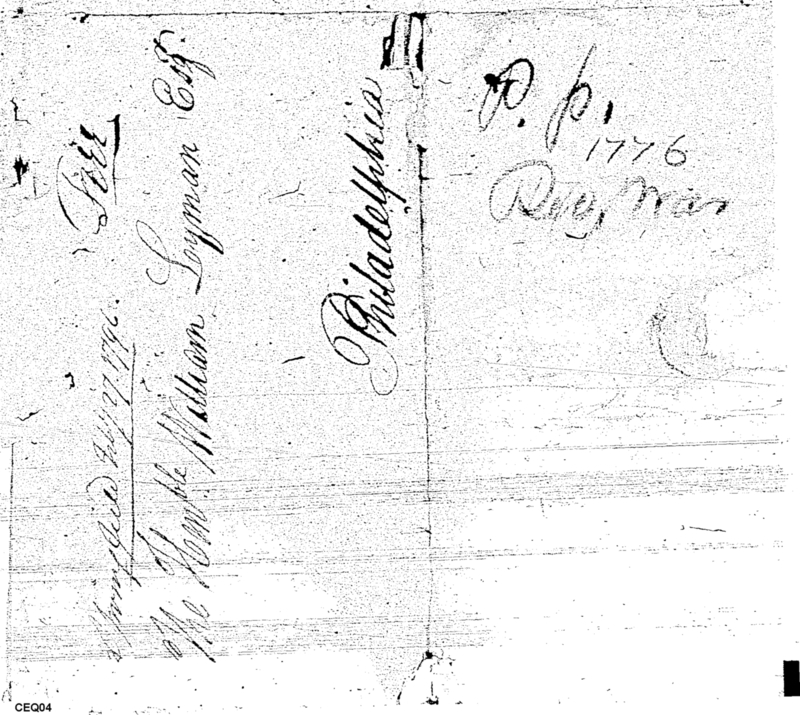 Springfield Feby 27. 1796. Free
The Honble William Lyman Esqr
Philadelphia
P. p.
1776
Rev, War
CEQ04